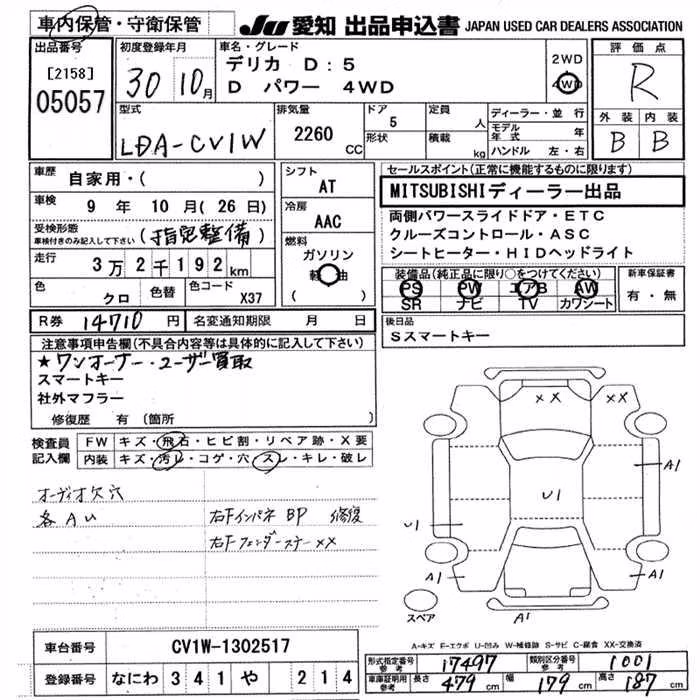 車内保管・守衛保管
JU 愛知 出品申込書 JAPAN USED CAR DEALERS ASSOCIATION
出品番号
[2158]
05057
初度登録年月
30 10月
車名・グレード
デリカ D：5
D パワー 4WD
2WD
4WD
評価点
R
外装 内装
B B
型式
LDA-CV1W
排気量
2260 CC
ドア
5
形状
定員
人
積載
kg
ディーラー・並行
モデル年式 年
ハンドル 左・右
車歴
自家用・( )
車検
9 年 10 月(26 日)
受検形態
車検付きのみ記入して下さい
(指定整備)
走行
3万2千192km
色
クロ
色替
色コード
X37
シフト
AT
冷房
AAC
燃料
ガソリン
軽油
( )
セールスポイント(正常に機能するものに限ります)
MITSUBISHIディーラー出品
両側パワースライドドア・ETC
クルーズコントロール・ASC
シートヒーター・HIDヘッドライト
装備品(純正品に限り○をつけてください)
PS PW エアB AW
SR ナビ TV カワシート
新車保証書
有・無
R券 14710 円 名変通知期限 月 日
後日品
Sスマートキー
注意事項申告欄(不具合内容等は具体的に記入して下さい)
★ワンオーナー・ユーザー買取
スマートキー
社外マフラー
修復歴 有 (箇所 )
検査員記入欄
FW キズ・飛石・ヒビ割・リペア跡・X要
内装 キズ・汚レ・コゲ・穴・スレ・キレ・破レ
オーディオ欠穴
各AU
右Fインパネ BP 修復
右Fフェンダーステー××
XX
A1
U1
U1
A1
A1
A1
スペア
A-キズ E-エクボ U-凹み W-補修跡 S-サビ C-腐食 XX-交換済
車台番号 CV1W-1302517
登録番号 なにわ 341 や 214
形式指定番号 参考 17497 類別区分番号 参考 1001
車庫証明用 参考 長さ 479 cm 幅 179 cm 高さ 187 cm